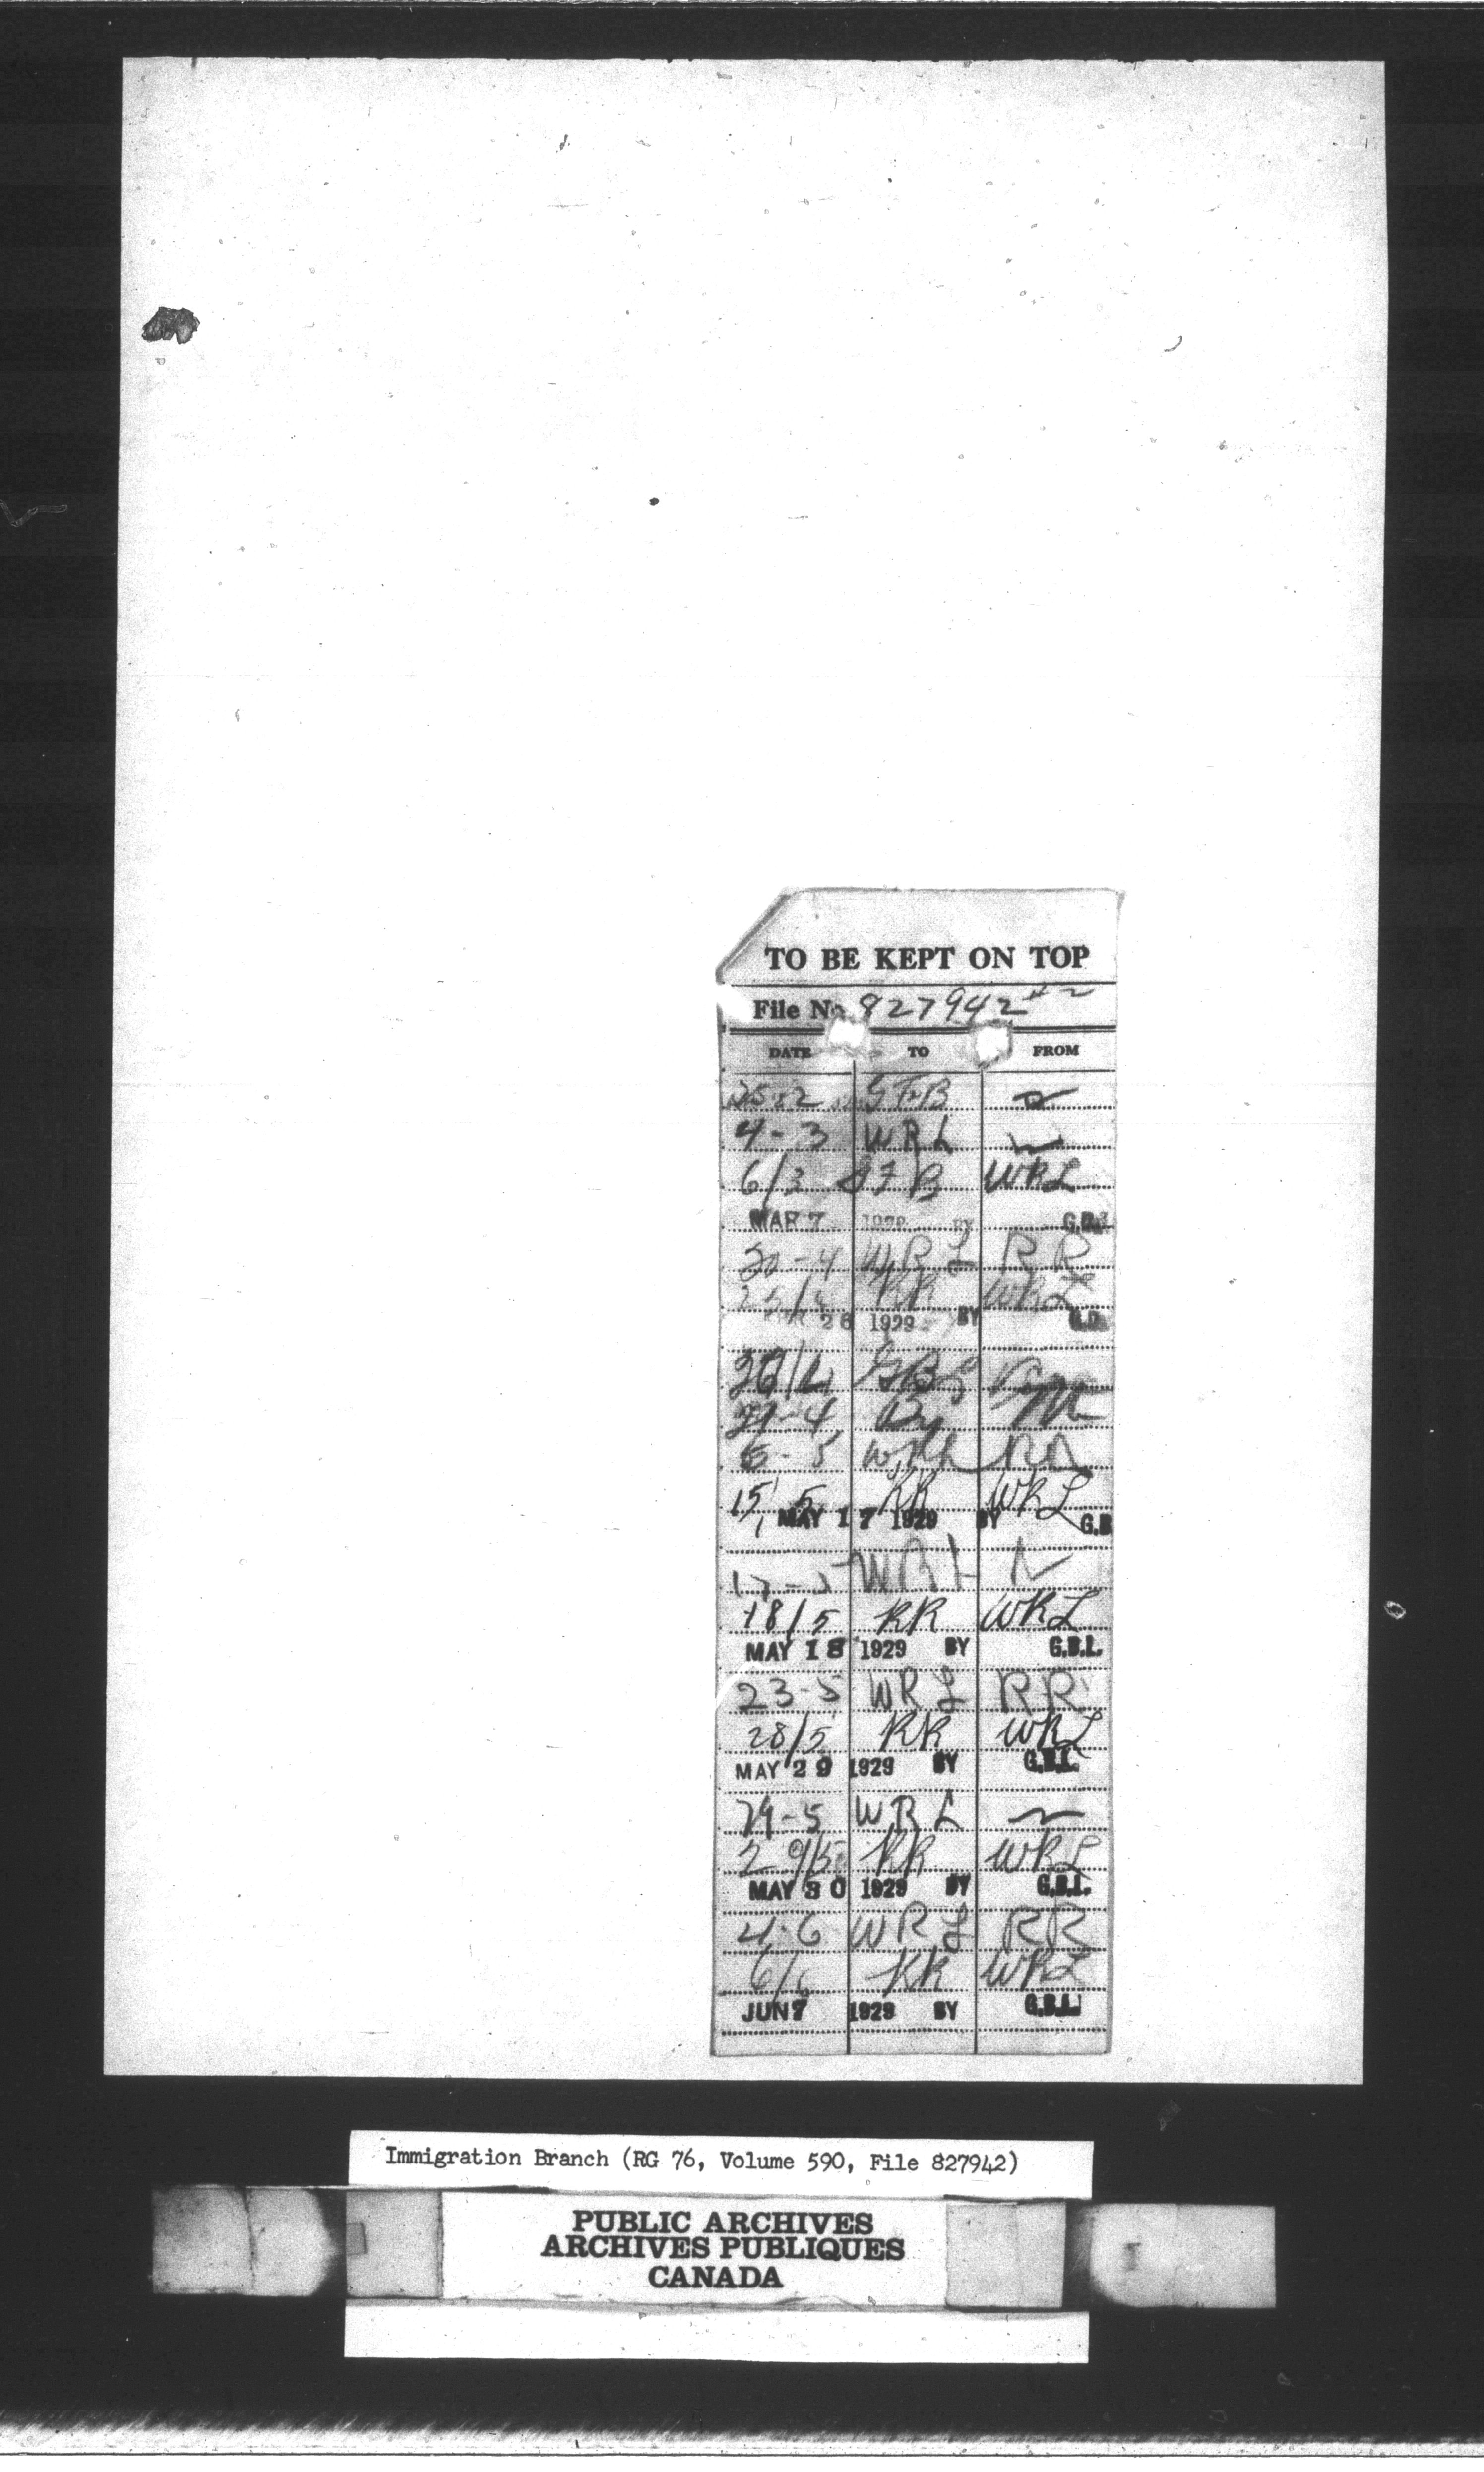 TO BE KEPT ON TOP
File No 827942 #2
DATE TO FROM
25-2 GFB
4-3 WRL
6/3 GFB WRL
MAR 7 BY
30-4 WRL RR
RR WRL
APR 26 1929 BY G.D.
By
6-5 WRL RR
15 5 RR WRL
MAY 17 1929 BY G.B
WRL
18/5 RR WRL
MAY 18 1929 BY G.B.L.
23-5 WRL RR
28/5 RR WRL
MAY 29 1929 BY G.B.L.
29-5 WRL
29/5 RR WRL
MAY 30 1929 BY G.B.L.
4-6 WRL RR
6/6 RR WRL
JUN 7 1929 BY G.B.L.
Immigration Branch (RG 76, Volume 590, File 827942)
PUBLIC ARCHIVES
ARCHIVES PUBLIQUES
CANADA